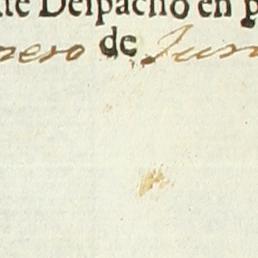 te Deſpacho en p
nero de Jun